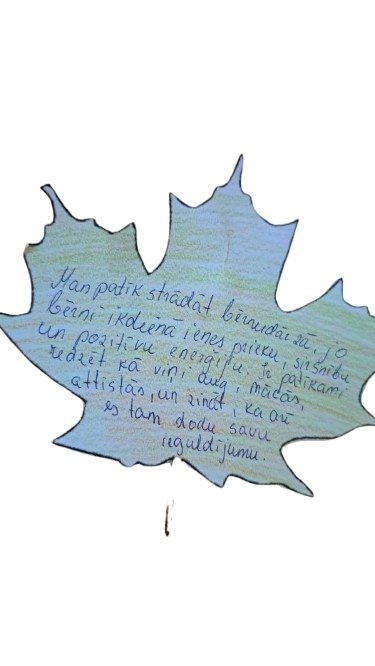 Man patīk strādāt bērnudārzā, jo
bērni ikdienā ienes prieku, sirsnību
un pozitīvu enerģiju. Ir patīkami
redzēt kā viņi aug, mācās,
attīstās, un zināt, ka arī
es tam dodu savu
ieguldījumu.